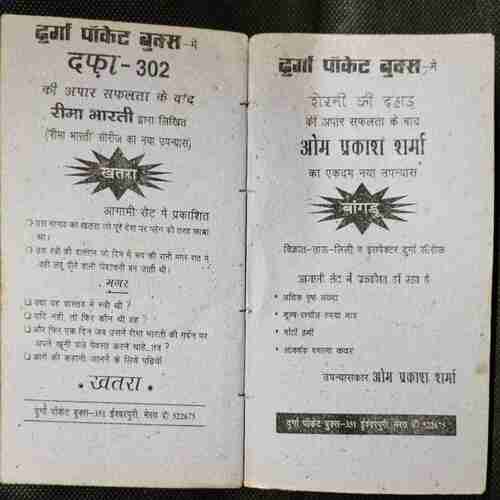 दुर्गा पॉकेट बुक्स -में
दफ़ा - 302
की अपार सफलता के बाद
रीमा भारती द्वारा लिखित
('रीमा भारती' सीरीज का नया उपन्यास)
खतरा
आगामी सैट में प्रकाशित
उस मानव का खतरा जो पूरे देश पर प्लेग की तरह छाया
था।
उस स्त्री की दास्तान जो दिन में रूप की रानी मगर रात में
लहू पीने वाली पिशाचनी बन जाती थी।
मगर
क्या वह वास्तव में स्त्री थी ?
यदि नहीं, तो फिर कौन थी वह ?
और फिर एक दिन जब उसने रीमा भारती की गर्दन पर
अपने खूनी पंजे पेवस्त करने चाहे..तब ?
आगे की कहानी जानने के लिये पढ़ियें
खतरा
दुर्गा पॉकेट बुक्स-351 ईश्वरपुरी, मेरठ दू० 522675
दुर्गा पॉकेट बुक्स -में
शेरनी की दहाड़
की अपार सफलता के बाद
ओम प्रकाश शर्मा
का एकदम नया उपन्यास
बांगड़
विक्रांत-ताऊ-लिली व इंसपेक्टर दुर्गा सीरीज
आगामी सैट में प्रकाशित हो रहा है
• अधिक पृष्ठ संख्या
•
•
• आकर्षक कवर
उपन्यासकार ओम प्रकाश शर्मा
दुर्गा पॉकेट बुक्स-351 ईश्वरपुरी, मेरठ दू० 522675